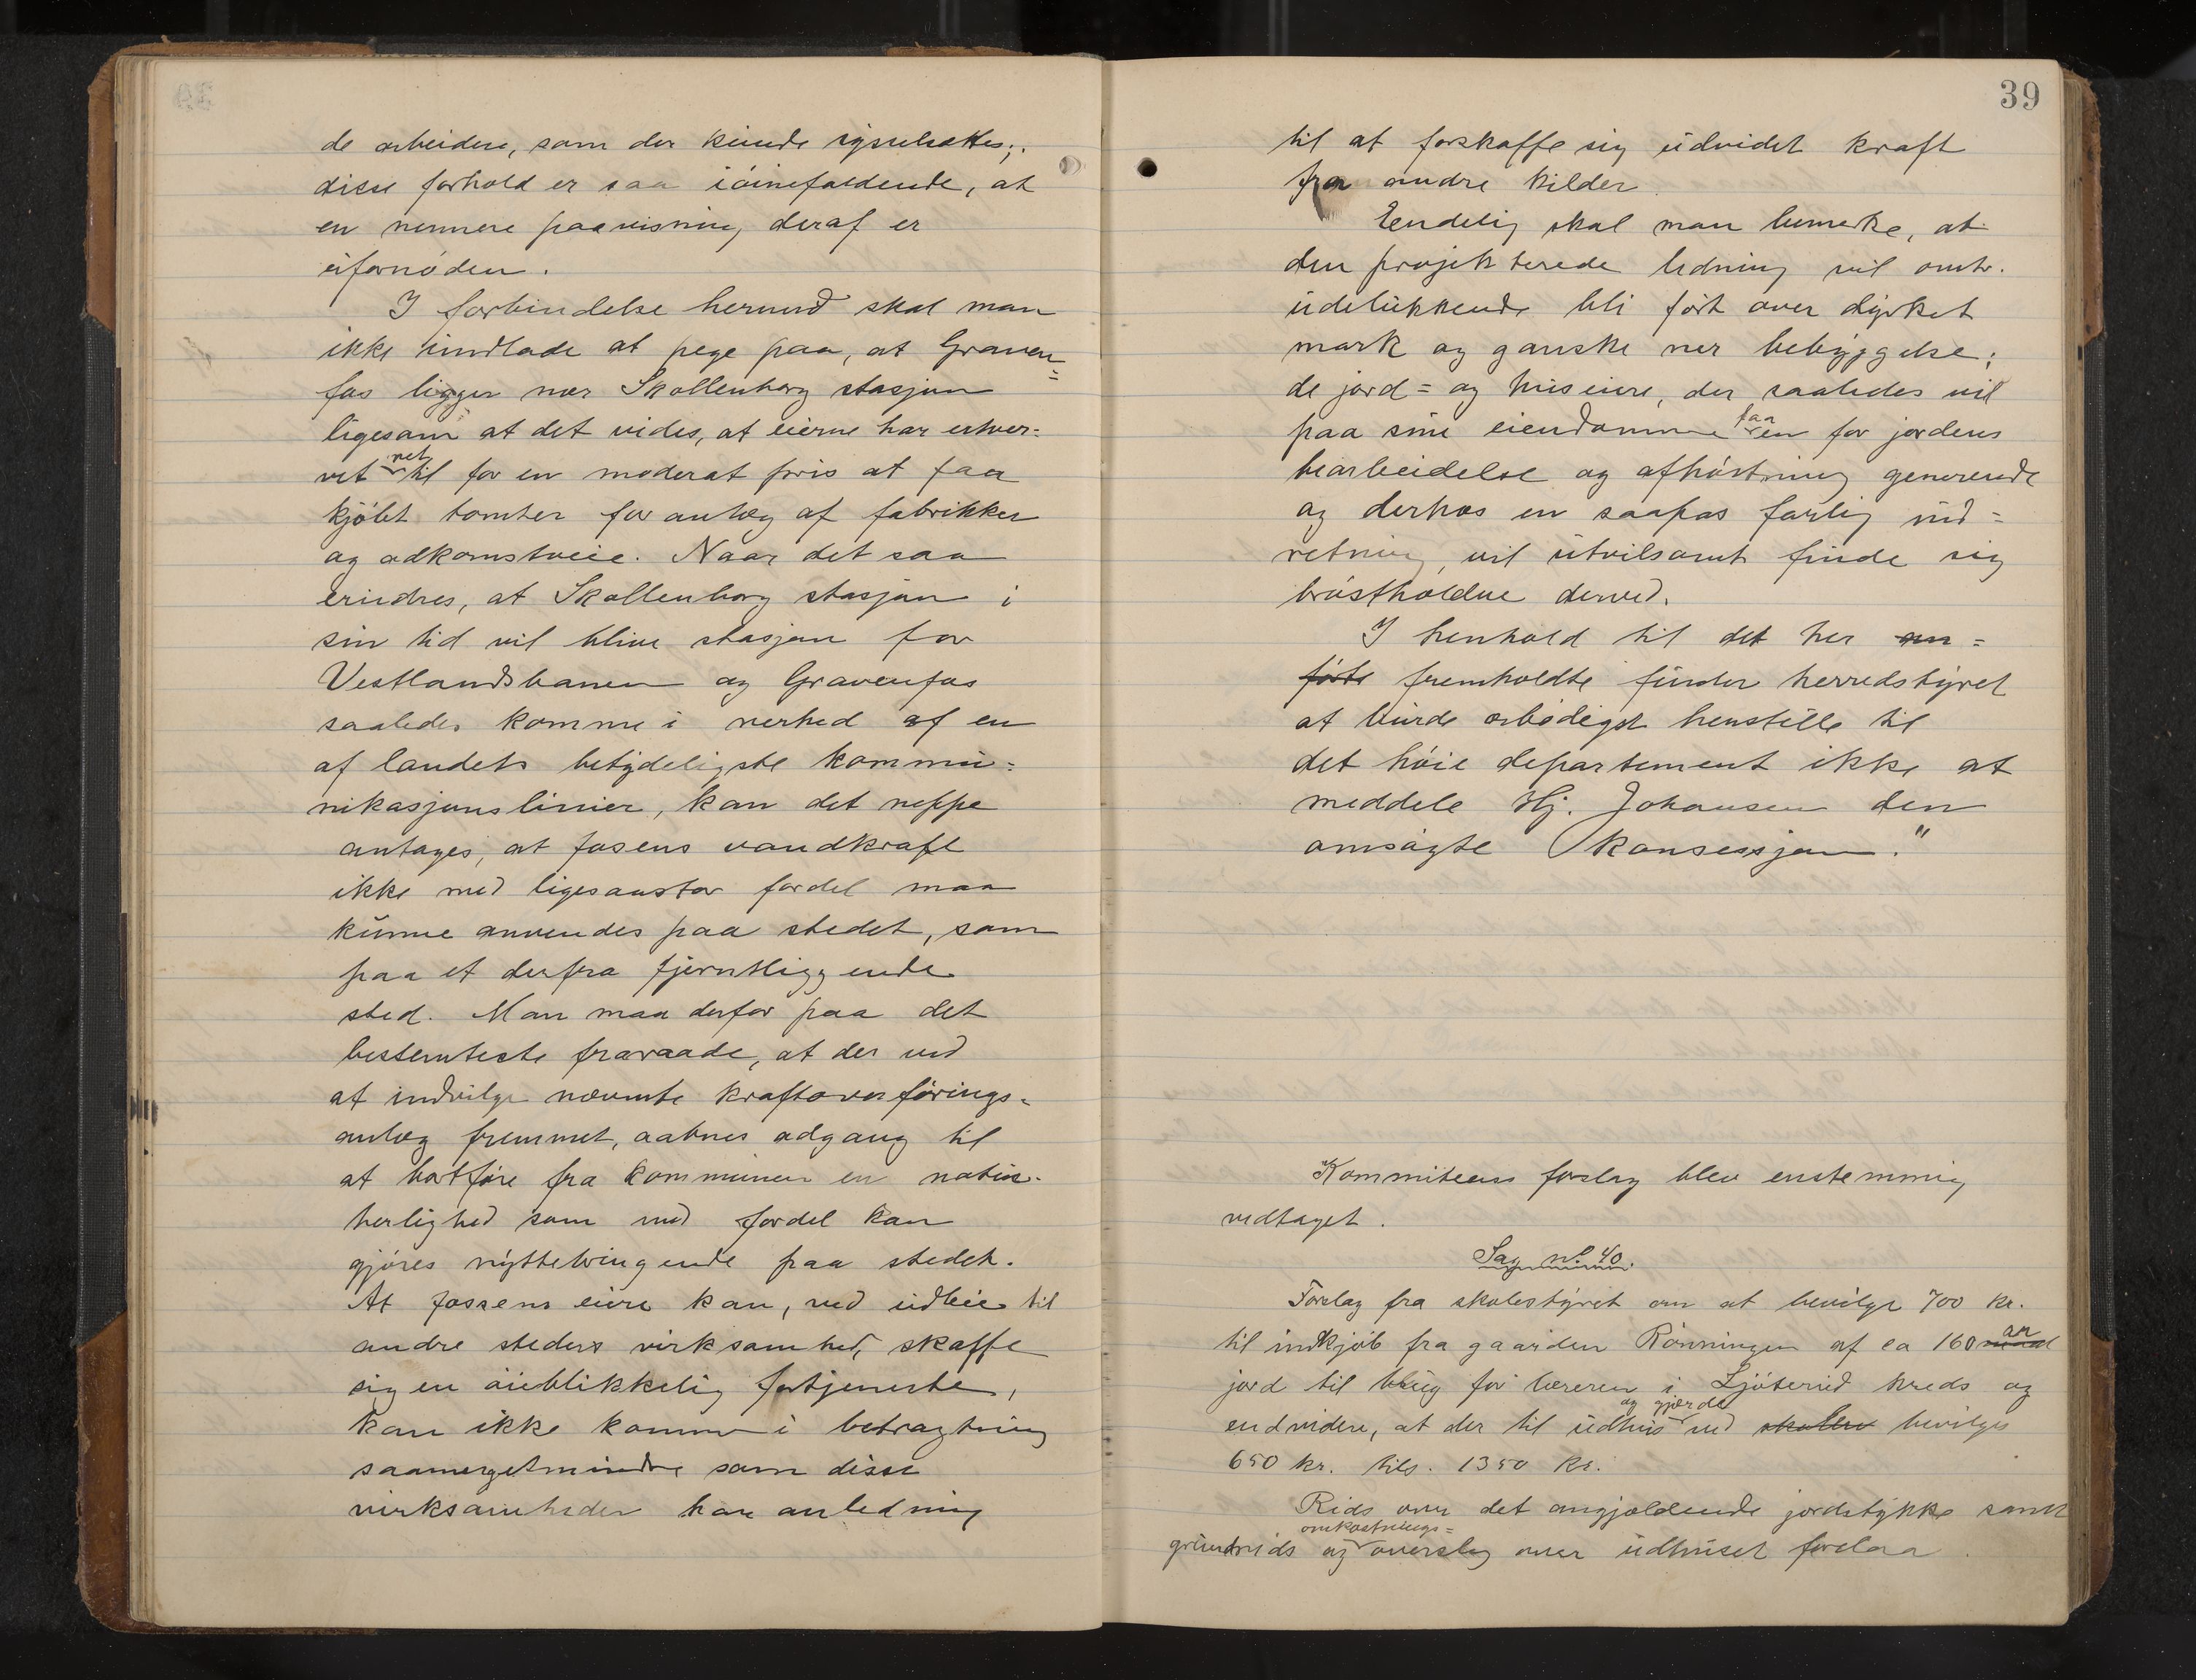 de arbeidere, som der kunde sysselsættes;
disse forhold er saa iöinefaldende, at
en nermere paavisning deraf er
ufornöden.
I forbindelse hermed skal man
ikke undlade at pege paa, at Graven=
fos ligger nær Skollenborg stasjon
ligesom at det vides, at eierne har erhver=
vet ret til for en moderat pris at faa
kjöbt tomter for anlæg af fabrikker
og adkomstveie. Naar det saa
erindres, at Skollenborg stasjon i
sin tid vil blive stasjon for
Vestlandsbanen og Gravenfos
saaledes komme i nerhed af en
af landets betydeligste kommu=
nikasjonslinier, kan det neppe
antages, at fosens vandkraft
ikke med ligesaastor fordel maa
kunne anvendes paa stedet, som
paa et derfra fjerntliggende
sted. Man maa derfor paa det
bestemteste fraraade, at der ved
at indvilge nævnte kraftoverförings=
anlæg fremmet, aabnes adgang til
at bortföre fra kommunen en natur=
herlighed som med fordel kan
gjöres nyttebringende paa stedet.
At fossens eiere kan, ved udleie til
andre steders virksomhed, skaffe
sig en öieblikkelig fortjeneste,
kan ikke komme i betragtning
saameget mindre som disse
virksomheder har anledning
39
til at forskaffe sig udvidet kraft
fra andre kilder.
Eendelig skal man bemerke, at
den projekterede ledning vil omtr.
udelukkende bli fört over dyrket
mark og ganske ner bebyggelse;
de jord= og huseiere, der saaledes vil
paa sine eiendomme faa en for jordens
bearbeidelse og afhöstning generende
og derhos en saapas farlig ind=
retning, vil utvilsomt finde sig
bröstholdne derved.
I henhold til det her an=
förte fremholdte finder herredstyret
at burde ærbödigst henstille til
det höie departement ikke at
meddele Hj. Johansen den
ansögte konsessjon."
Kommiteens forslag blev enstemmig
vedtaget.
Sag no 40.
Forslag fra skolestyret om at bevilge 700 kr.
til indkjöb fra gaarden Rönningen af ca 160 ar
jord til brug for læreren i Ljöterud kreds og
endvidere, at der til udhus og gjærde ved skolen bevilges
650 kr. tils. 1350 kr.
Rids over det angjældende jordstykke samt
grundrids og omkostnings= overslag over udhuset forelaa.